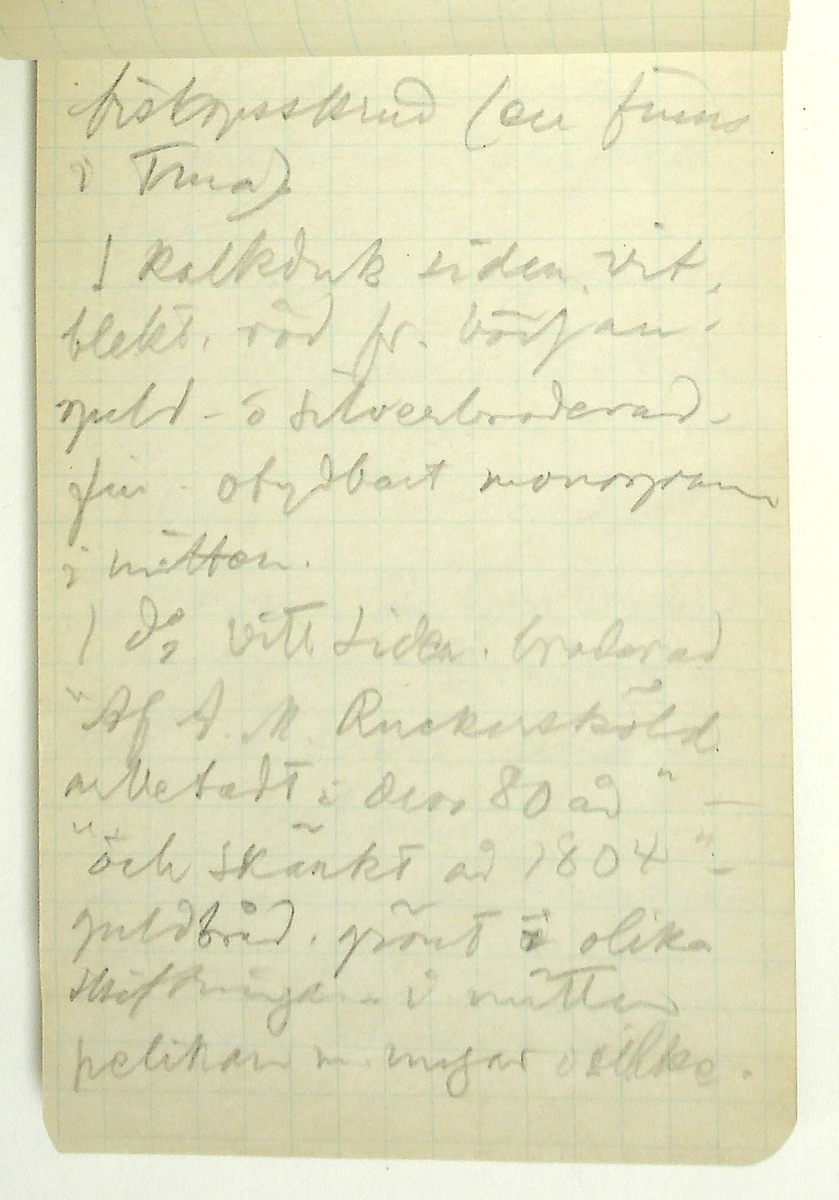 biskopsskrud (en finns
i Tuna)
1 kalkduk siden, vit,
blekt, röd fr. början.
guld- o silverbroderad.
fin - otydbart monogram
i mitten.
1 do vitt siden. broderad
"Af A. M. Ruckersköld
arbetadt i dess 80 år" -
"och skänkt år 1804" -
guldbråd. grönt i olika
skiftningar i mitten
pelikan m. ungar silke.